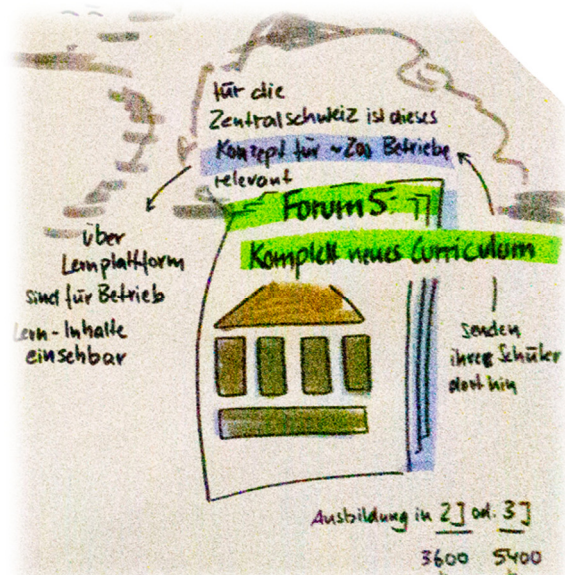 für die
Zentralschweiz ist dieses
Konzept für ~200 Betriebe
relevant
Forum 5
Komplett neues Curriculum
über
Lernplattform
sind für Betrieb
Lern-Inhalte
einsehbar
senden
ihre Schüler
dorthin
Ausbildung in 2J od. 3J
3600 5400